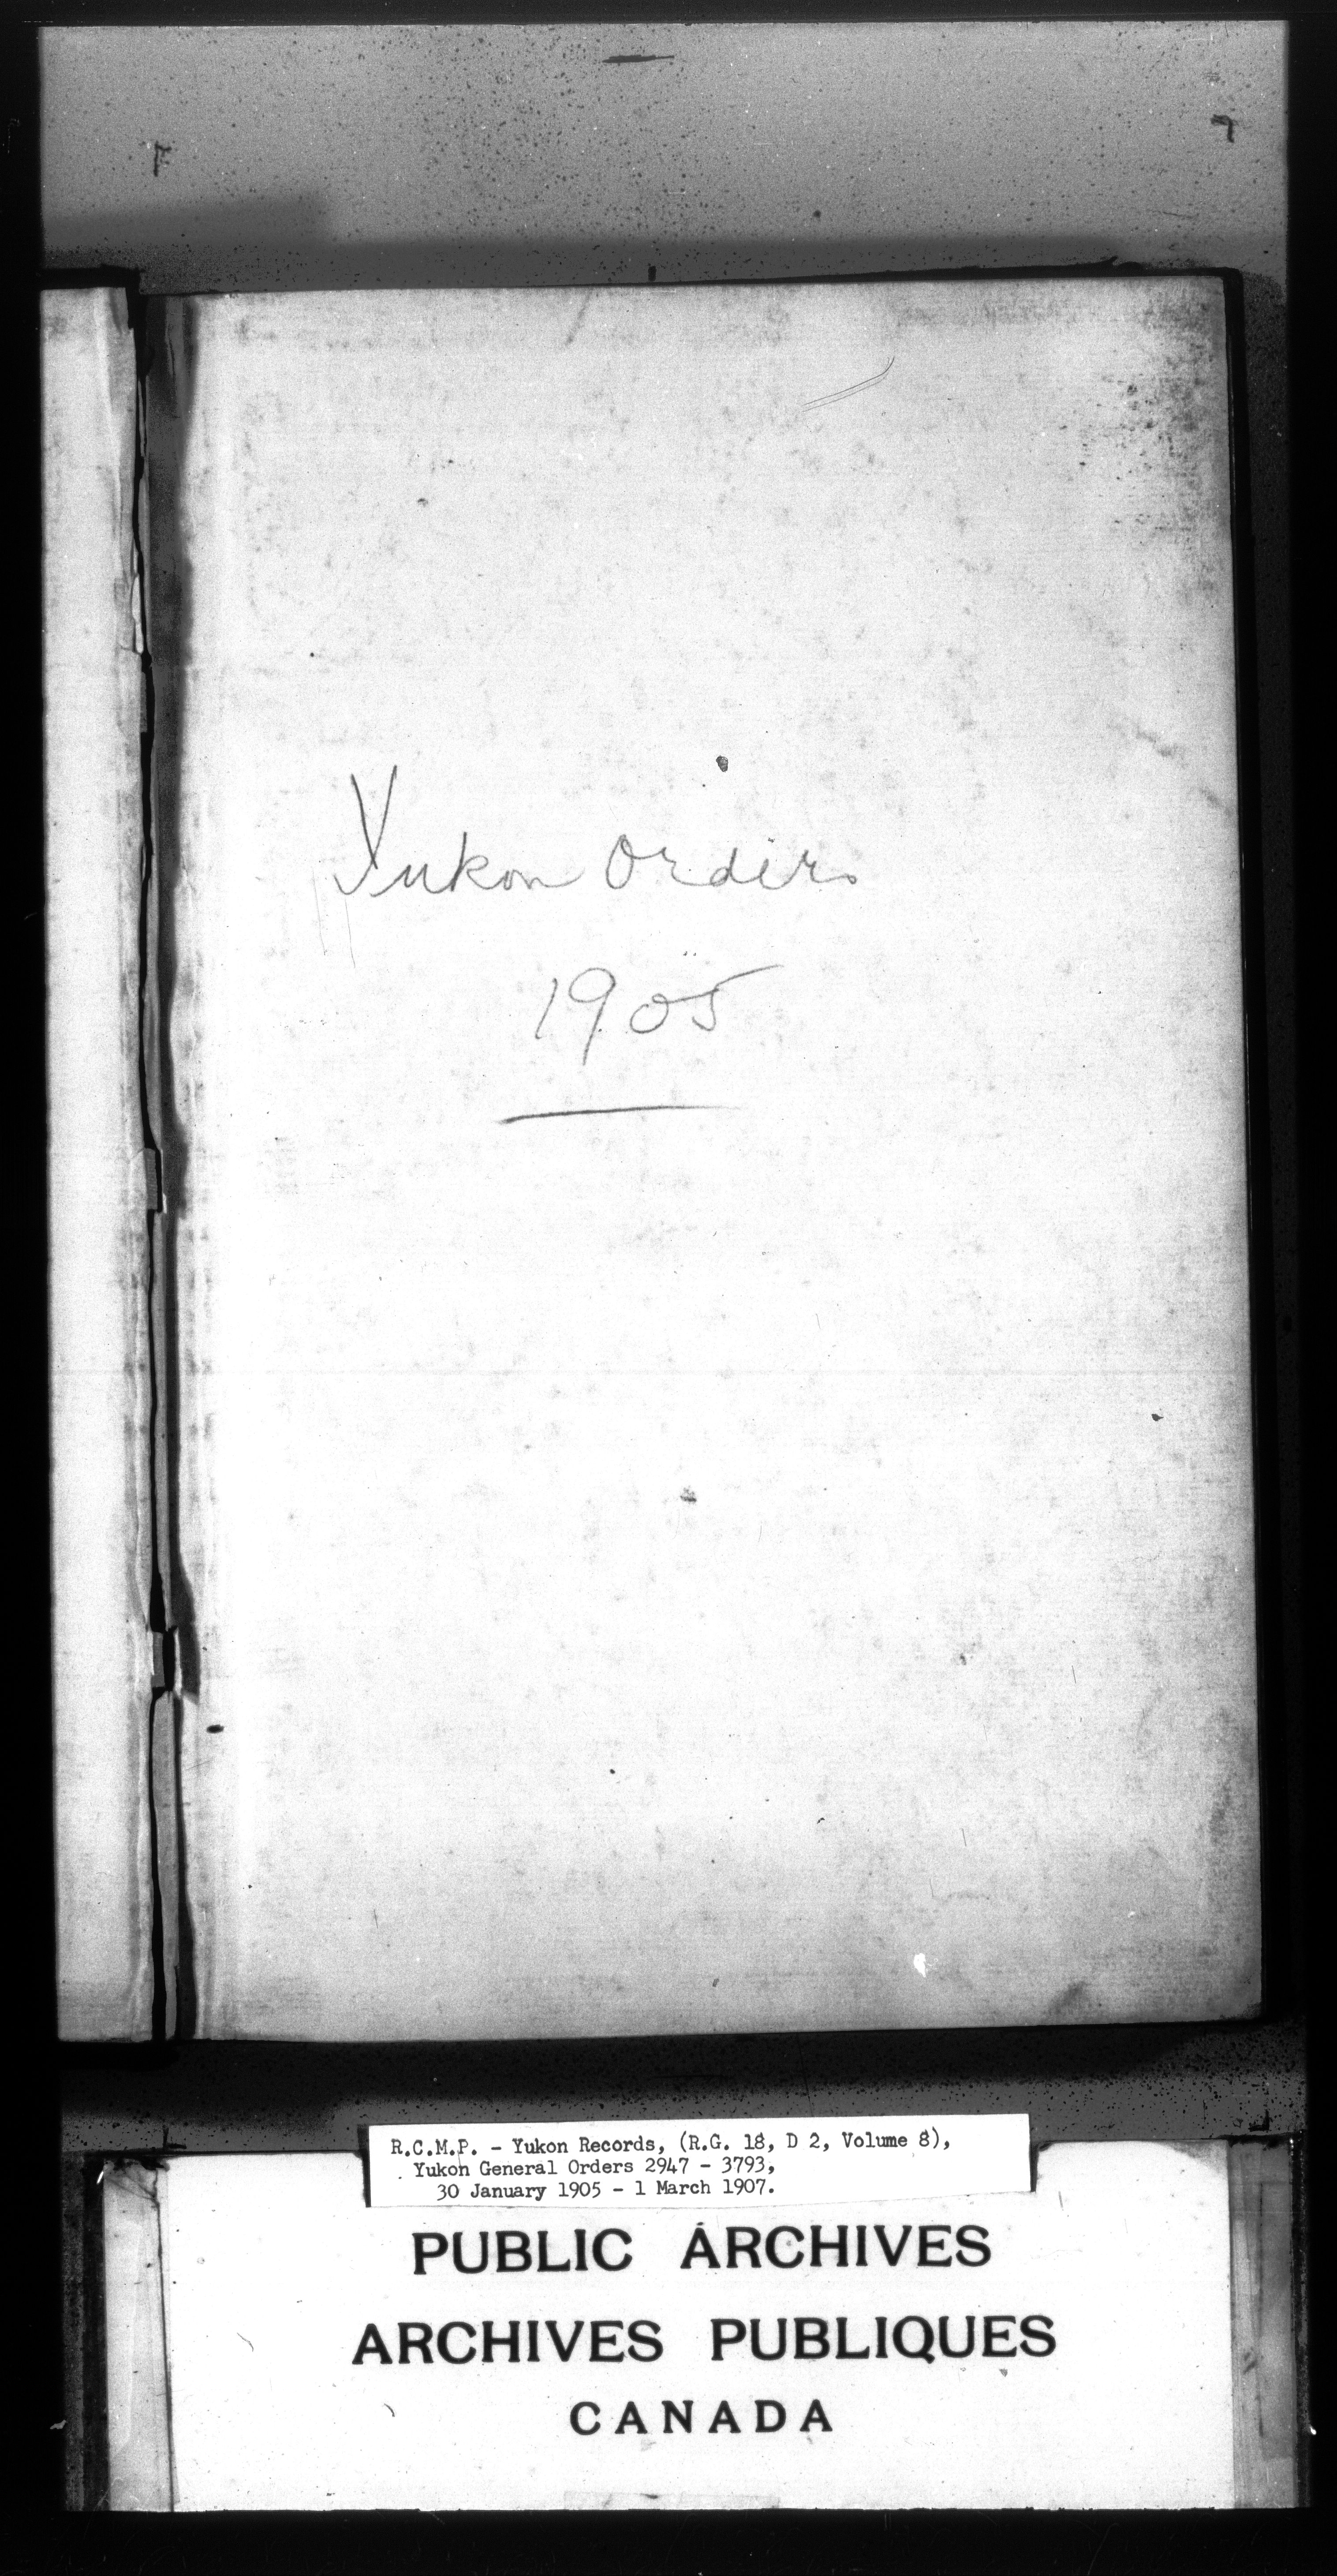 Yukon Orders
1905
R.C.M.P. - Yukon Records, (R.G. 18, D 2, Volume 8),
Yukon General Orders 2947 - 3793,
30 January 1905 - 1 March 1907.
PUBLIC ARCHIVES
ARCHIVES PUBLIQUES
CANADA